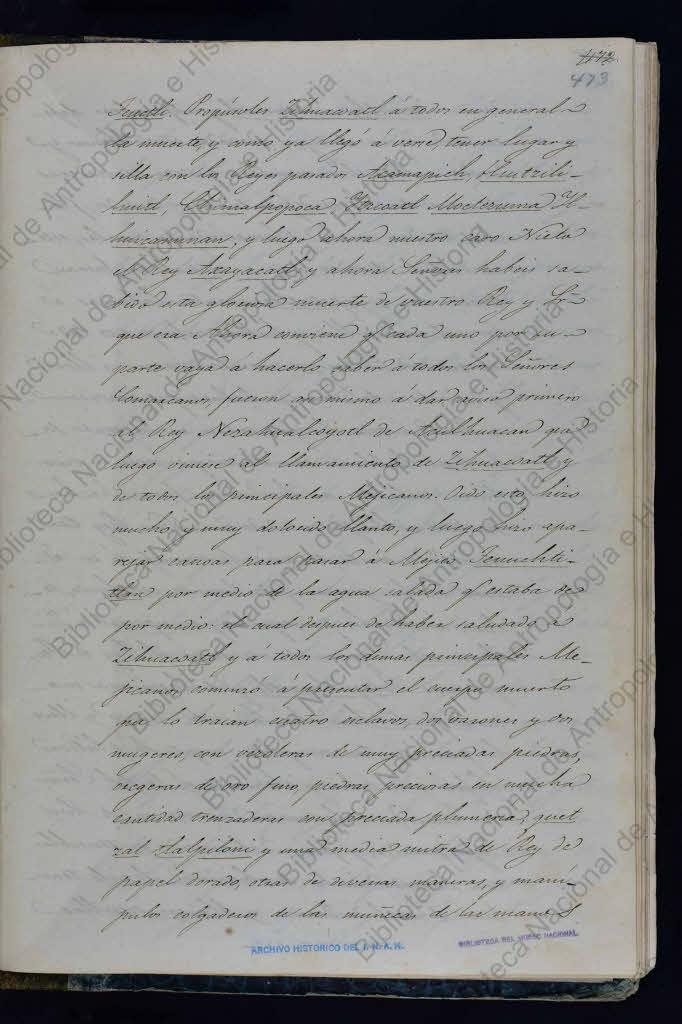 472
473
Teuctli. Propúsoles Zihuacoatl á todos en general
la muerte, y como ya llegó á verse, tener lugar y
silla con los Reyes pasados Acamapich, Huitzili-
huitl, Chimalpopoca Itzcoatl Moctezuma Y-
lhuicaminan, y luego ahora nuestro caro Nieto
el Rey Axayacatl, y ahora Señores habeis sa-
bido esta gloriosa muerte de vuestro Rey y Sr
que era. Ahora conviene q̃ cada uno por su
parte vaya á hacerlo saber á todos los Señores
Comarcanos, fueron asi mismo á dar aviso primero
al Rey Nezahualcoyotl de Aculhuacan pa
luego viniese al llamamiento de Zihuacoatl y
de todos los principales Mejicanos. Oido esto, hizo
mucho, y muy dolorido llanto, y luego hizo apa-
rejar canoas para pasar á Mejico Tenuchti-
tlan por medio de la agua salada q̃ estaba de
por medio: el cual despues de haber saludado a
Zihuacoatl y á todos los demas principales Me-
jicanos, comenzo á presentar el cuerpo muerto
que lo traian cuatro esclavos, dos varones y dos
mugeres, con vezoleras de muy preciadas piedras,
orejeras de oro fino, piedras preciosas en mucha
cantidad trenzaderas con preciada plumeria, quet
zal tlalpiloni y una media mitra de Rey de
papel dorado, otras de diversas maneras, y maní-
pulos colgaderos de las muñecas de las manos
ARCHIVO HISTORICO DEL I. N. A. H.
BIBLIOTECA DEL MUSEO NACIONAL
Biblioteca Nacional de Antropología e Historia